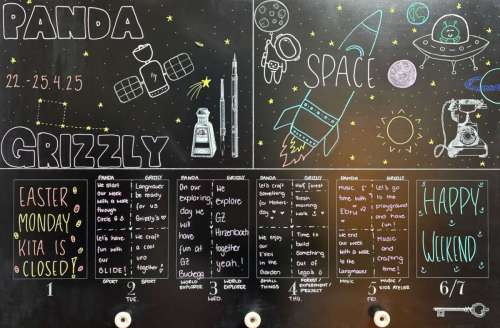 PANDA
22.-25.4.25
GRIZZLY
SPACE
EASTER
MONDAY
KITA IS
CLOSED!
1
PANDA
We start
our week
with a walk
through
Let's have
fun with
our
SLIDE!
SPORT
GRIZZLY
Langmauer
be ready
for us
Grizzly's
We craft
a cool
uro
together
SPORT
2
TUE.
PANDA
On our
exploring
day we
will
have
fun at
GZ
Buchegg
WORLD
EXPLORER
GRIZZLY
We
explore
GZ
Hirzenbach
together
yeah!
WORLD
EXPLORER
3
WED.
PANDA
Let's craft
Something
for Mothers
day
We enjoy
our
S'Zni
in the
Garden
SMALL
STORIES
GRIZZLY
fresh
morning
walk
Something
out of
Legos
FOREST/
EXPERIMENT/
PROJECT
4
THU.
PANDA
Music
time with
Ebru
We end
our week
with a
walk
to the
Langmauer
MUSIC
GRIZZLY
Let's go
to the
playground
and have
fun!
Music
and
crafting
time!
MUSIC/
KIDS ATELIER
5
FRI.
HAPPY
WEEKEND
6/7